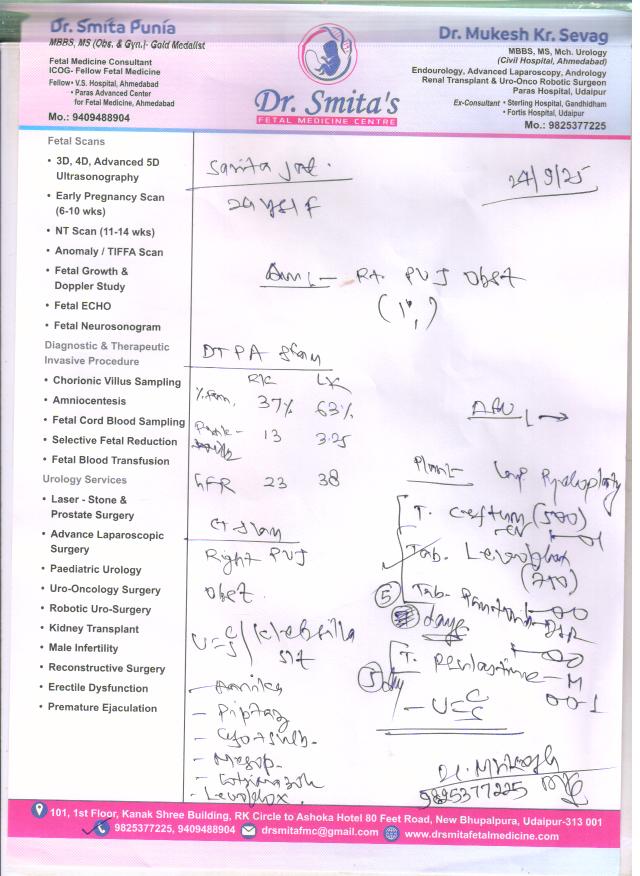 Dr. Smita Punia
MBBS, MS (Obs. & Gyn.)- Gold Medalist
Fetal Medicine Consultant
ICOG- Fellow Fetal Medicine
Fellow • V.S. Hospital, Ahmedabad
• Paras Advanced Center
for Fetal Medicine, Ahmedabad
Mo.: 9409488904
Dr. Smita's
FETAL MEDICINE CENTRE
Dr. Mukesh Kr. Sevag
MBBS, MS, Mch. Urology
(Civil Hospital, Ahmedabad)
Endourology, Advanced Laparoscopy, Andrology
Renal Transplant & Uro-Onco Robotic Surgeon
Paras Hospital, Udaipur
Ex-Consultant • Sterling Hospital, Gandhidham
• Fortis Hospital, Udaipur
Mo.: 9825377225
Fetal Scans
• 3D, 4D, Advanced 5D
Ultrasonography
• Early Pregnancy Scan
(6-10 wks)
• NT Scan (11-14 wks)
• Anomaly / TIFFA Scan
• Fetal Growth &
Doppler Study
• Fetal ECHO
• Fetal Neurosonogram
Diagnostic & Therapeutic
Invasive Procedure
• Chorionic Villus Sampling
• Amniocentesis
• Fetal Cord Blood Sampling
• Selective Fetal Reduction
• Fetal Blood Transfusion
Urology Services
• Laser - Stone &
Prostate Surgery
• Advance Laparoscopic
Surgery
• Paediatric Urology
• Uro-Oncology Surgery
• Robotic Uro-Surgery
• Kidney Transplant
• Male Infertility
• Reconstructive Surgery
• Erectile Dysfunction
• Premature Ejaculation
24/9/25
Rt. PUJ Obst
(1°)
DTPA Scan
RK LK
37% 63%
13 3.25
GFR 23 38
CT Scan
Right PUJ
Obst.
U=C/S
Plan Lap. Pyeloplasty
T. Ceftum (500)
Tab.
Tab.
5
days
T. - M
0 0 1
- U=C/S
- Piptaz
- Levoflox.
9825377225
101, 1st Floor, Kanak Shree Building, RK Circle to Ashoka Hotel 80 Feet Road, New Bhupalpura, Udaipur-313 001
9825377225, 9409488904 drsmitafmc@gmail.com www.drsmitafetalmedicine.com